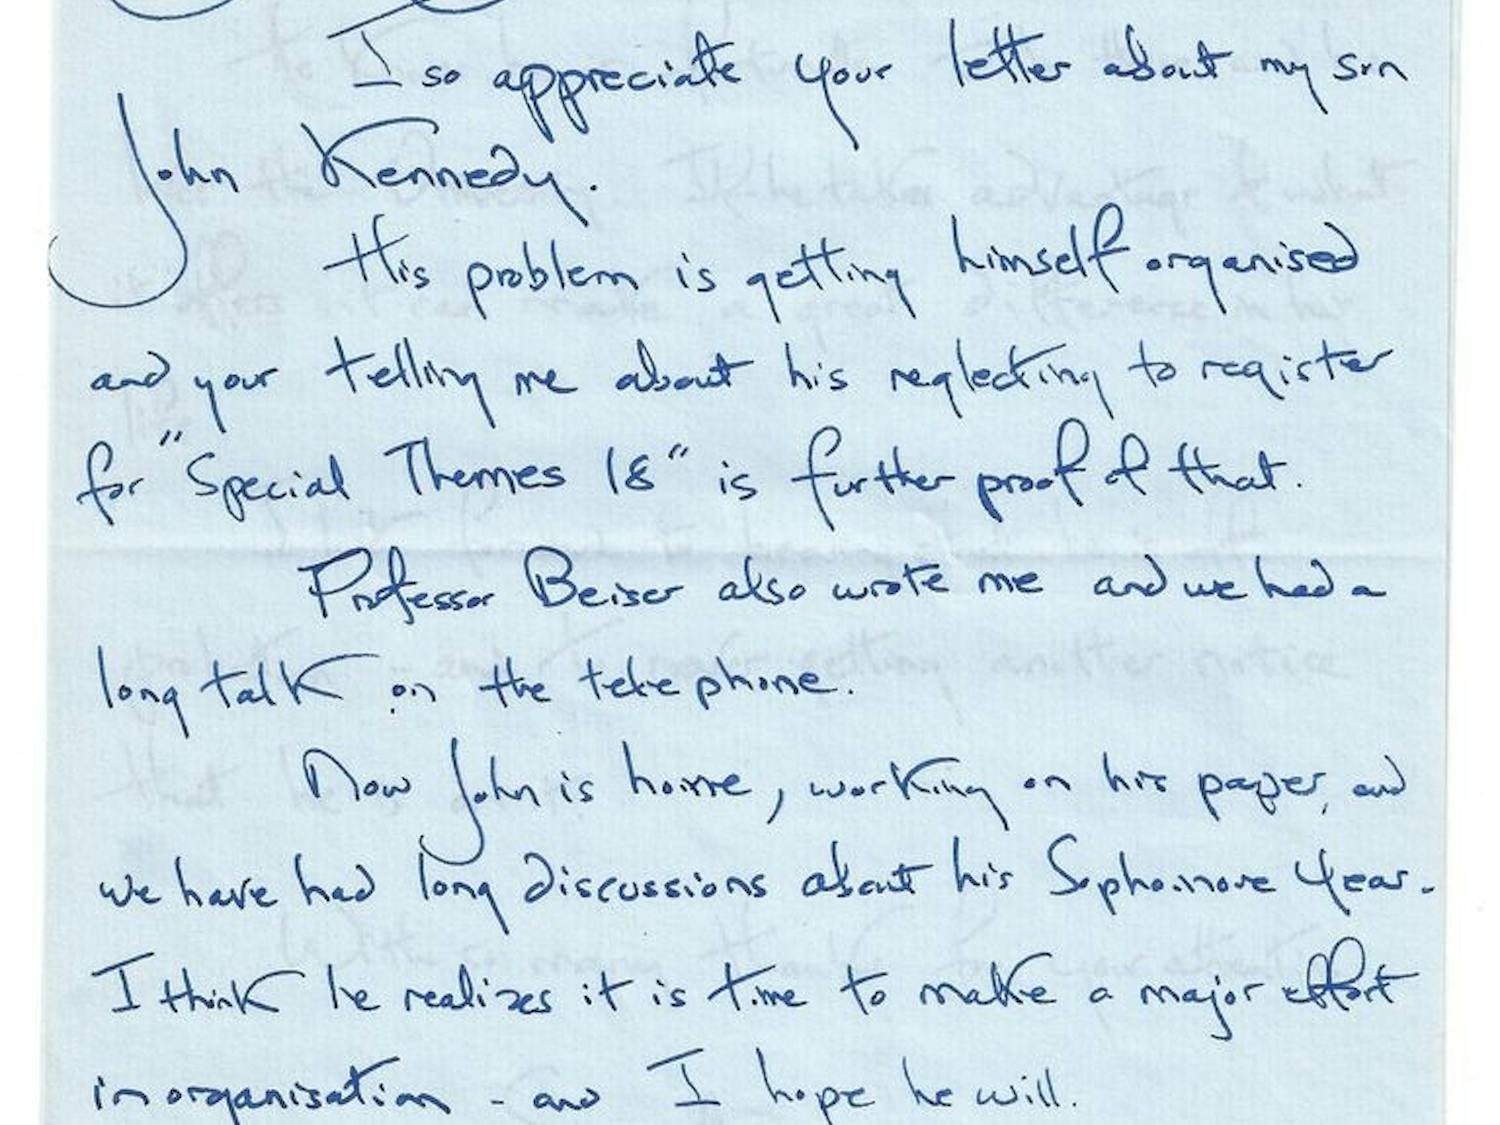 I so appreciate your letter about my son
John Kennedy.
His problem is getting himself organised
and your telling me about his neglecting to register
for "Special Themes 18" is further proof of that.
Professor Beiser also wrote me and we had a
long talk on the telephone.
Now John is home, working on his paper, and
we have had long discussions about his Sophomore Year.
I think he realizes it is time to make a major effort
in organisation - and I hope he will.